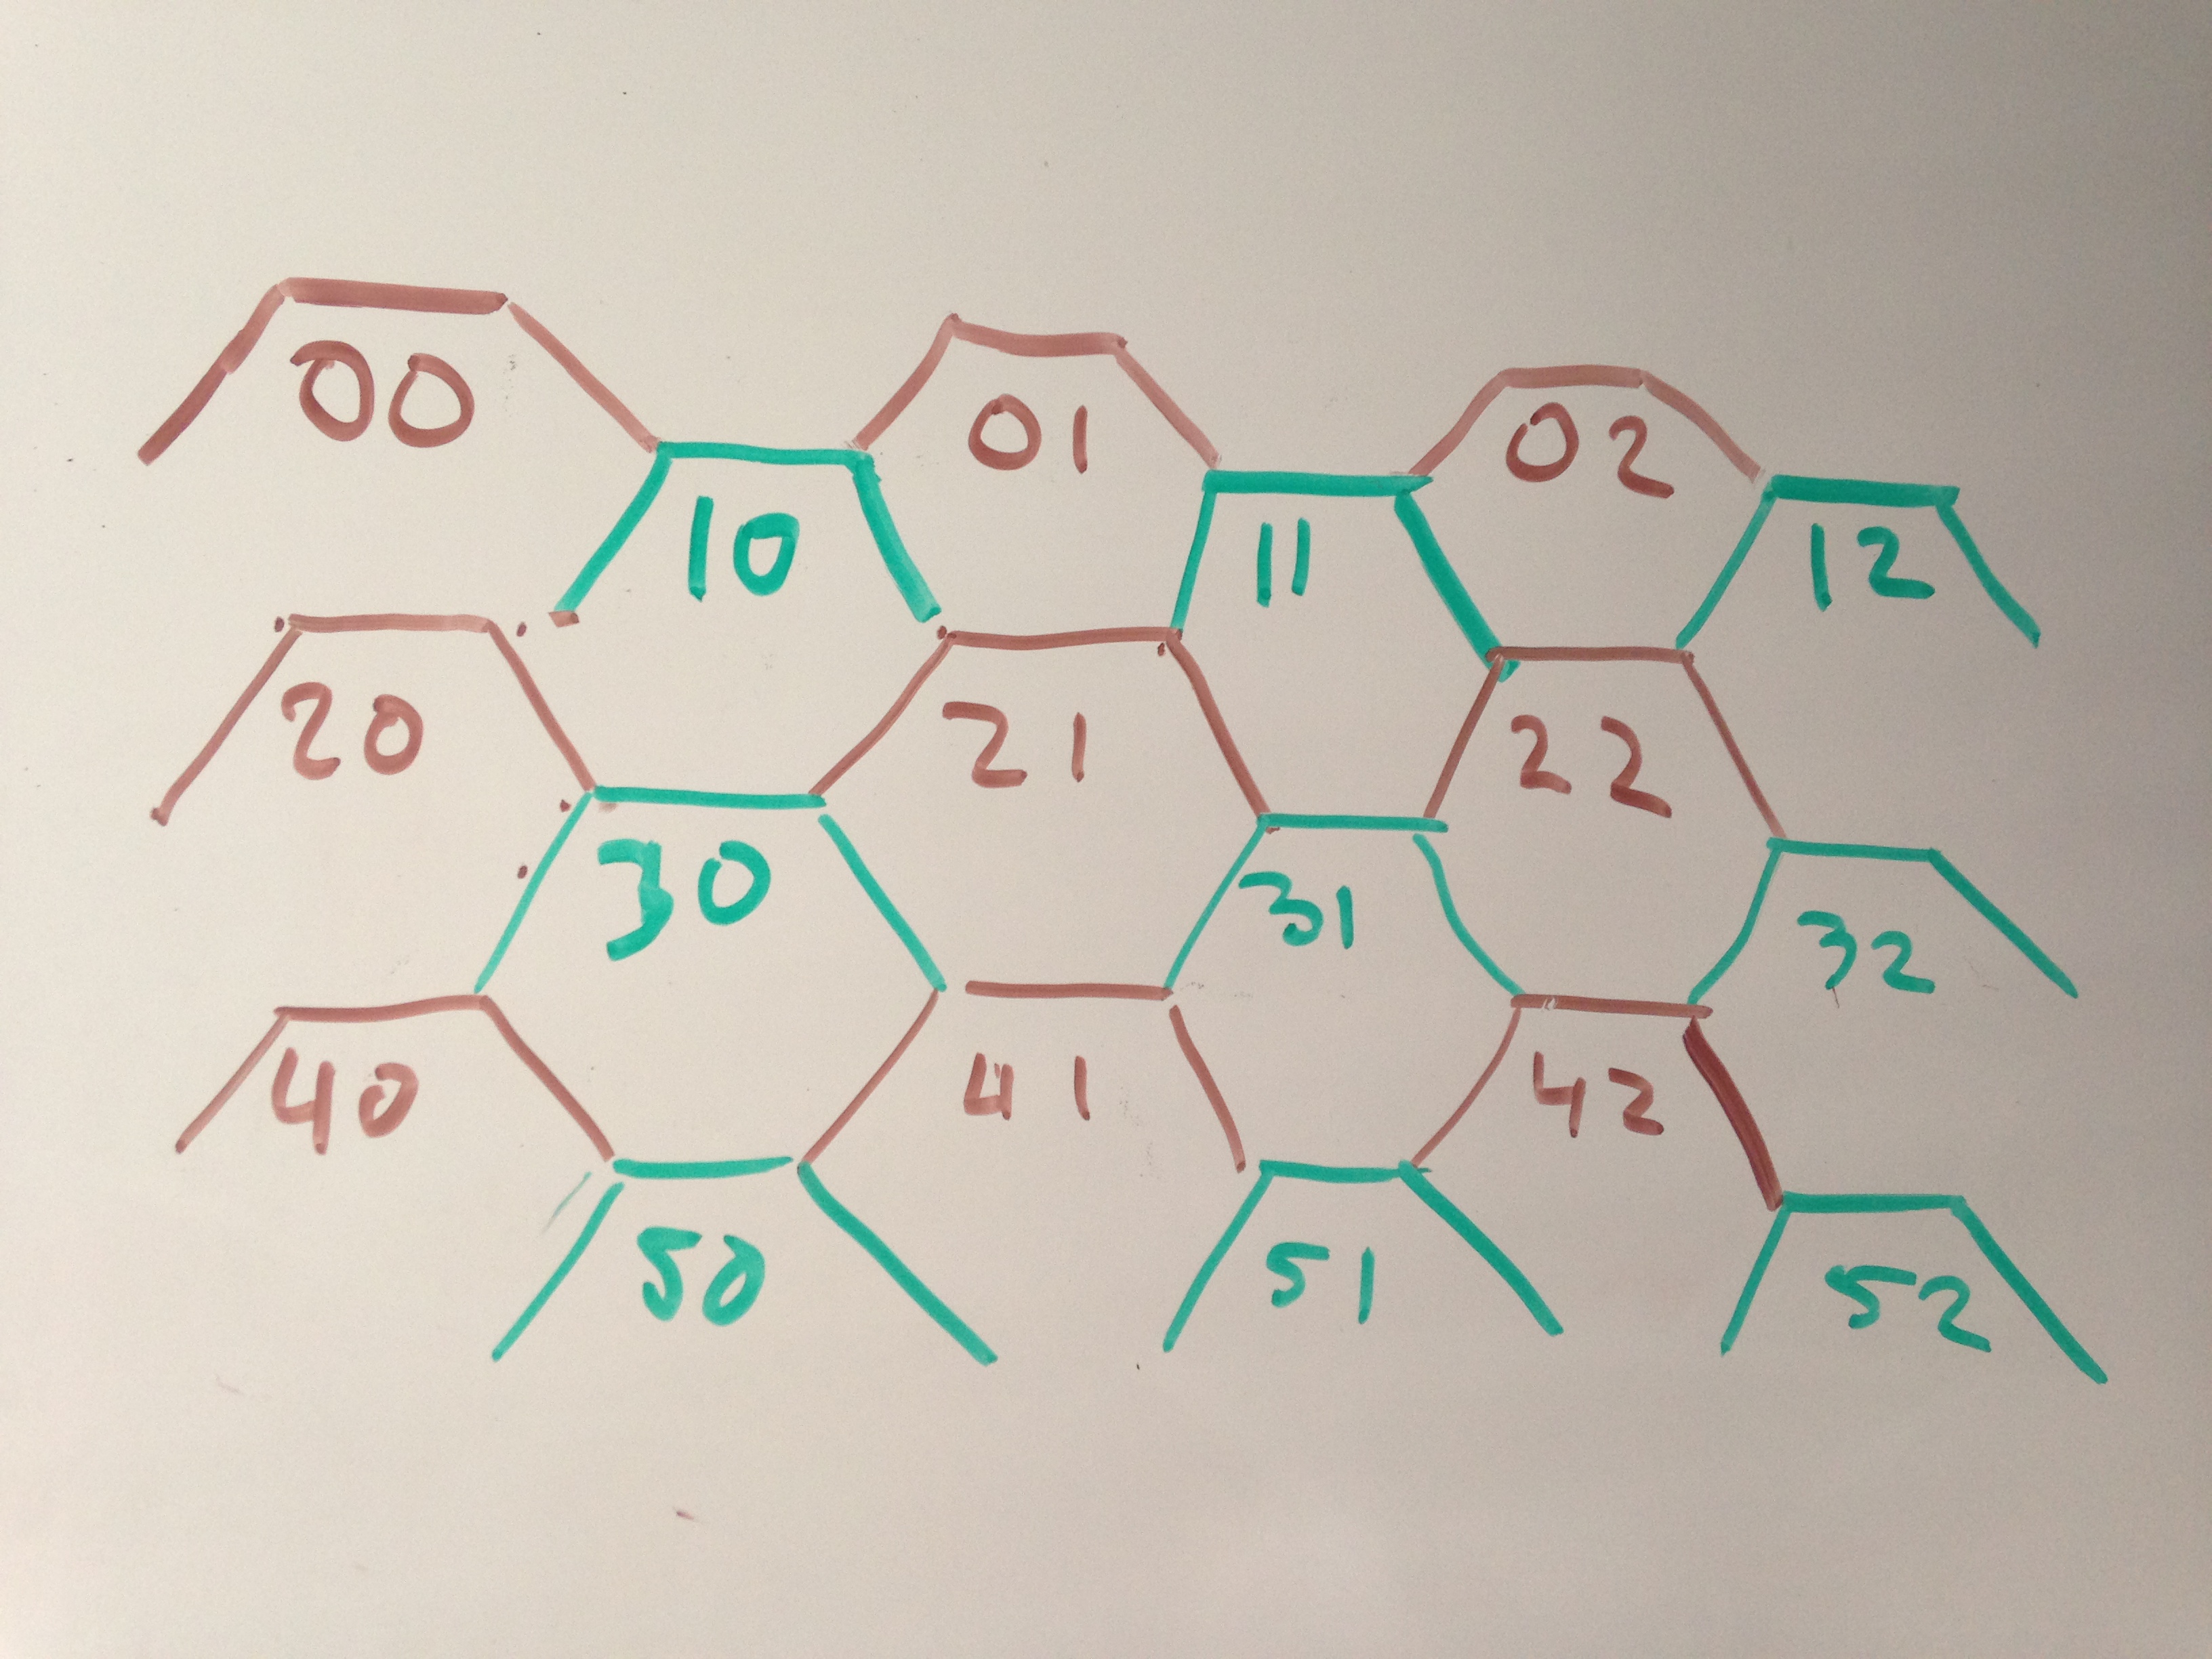 00 01 02
10 11 12
20 21 22
30 31 32
40 41 42
50 51 52